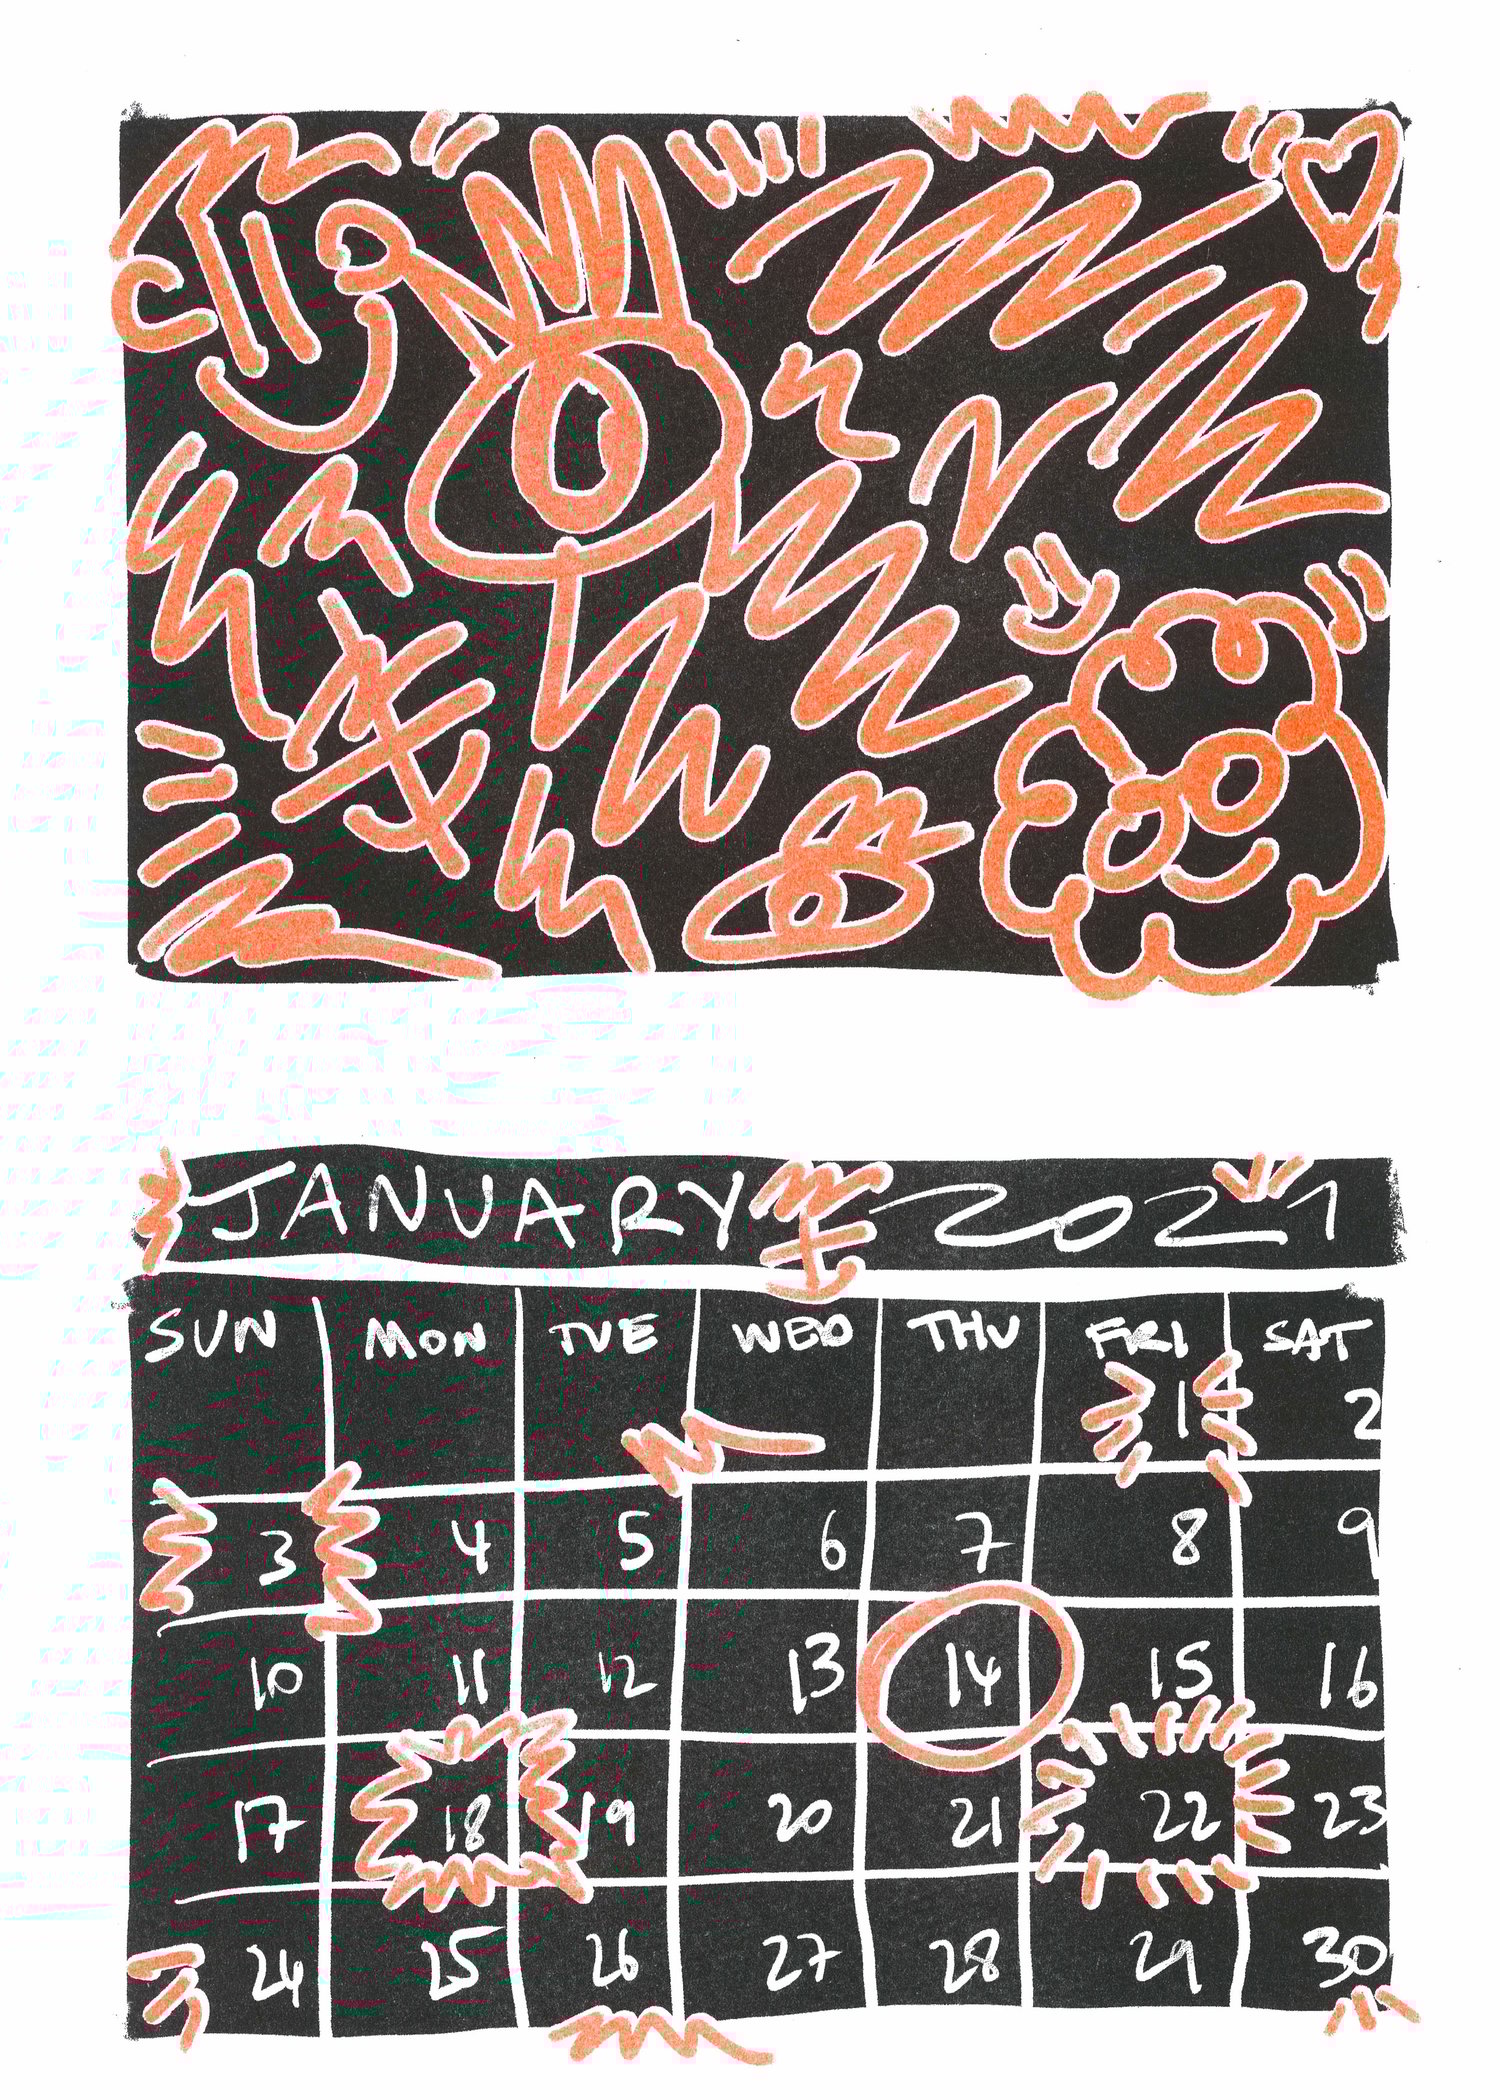 JANUARY 2021
SUN MON TUE WED THU FRI SAT
1 2
3 4 5 6 7 8 9
10 11 12 13 14 15 16
17 18 19 20 21 22 23
24 25 26 27 28 29 30